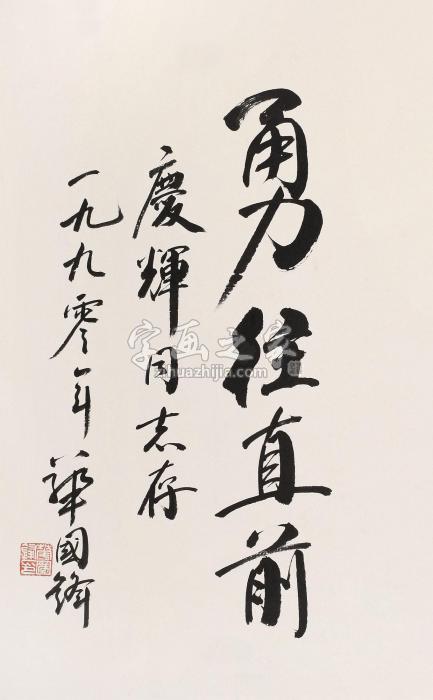 勇往直前
慶輝同志存
一九九零年 華國鋒
字画之家
zihuazhijia.com